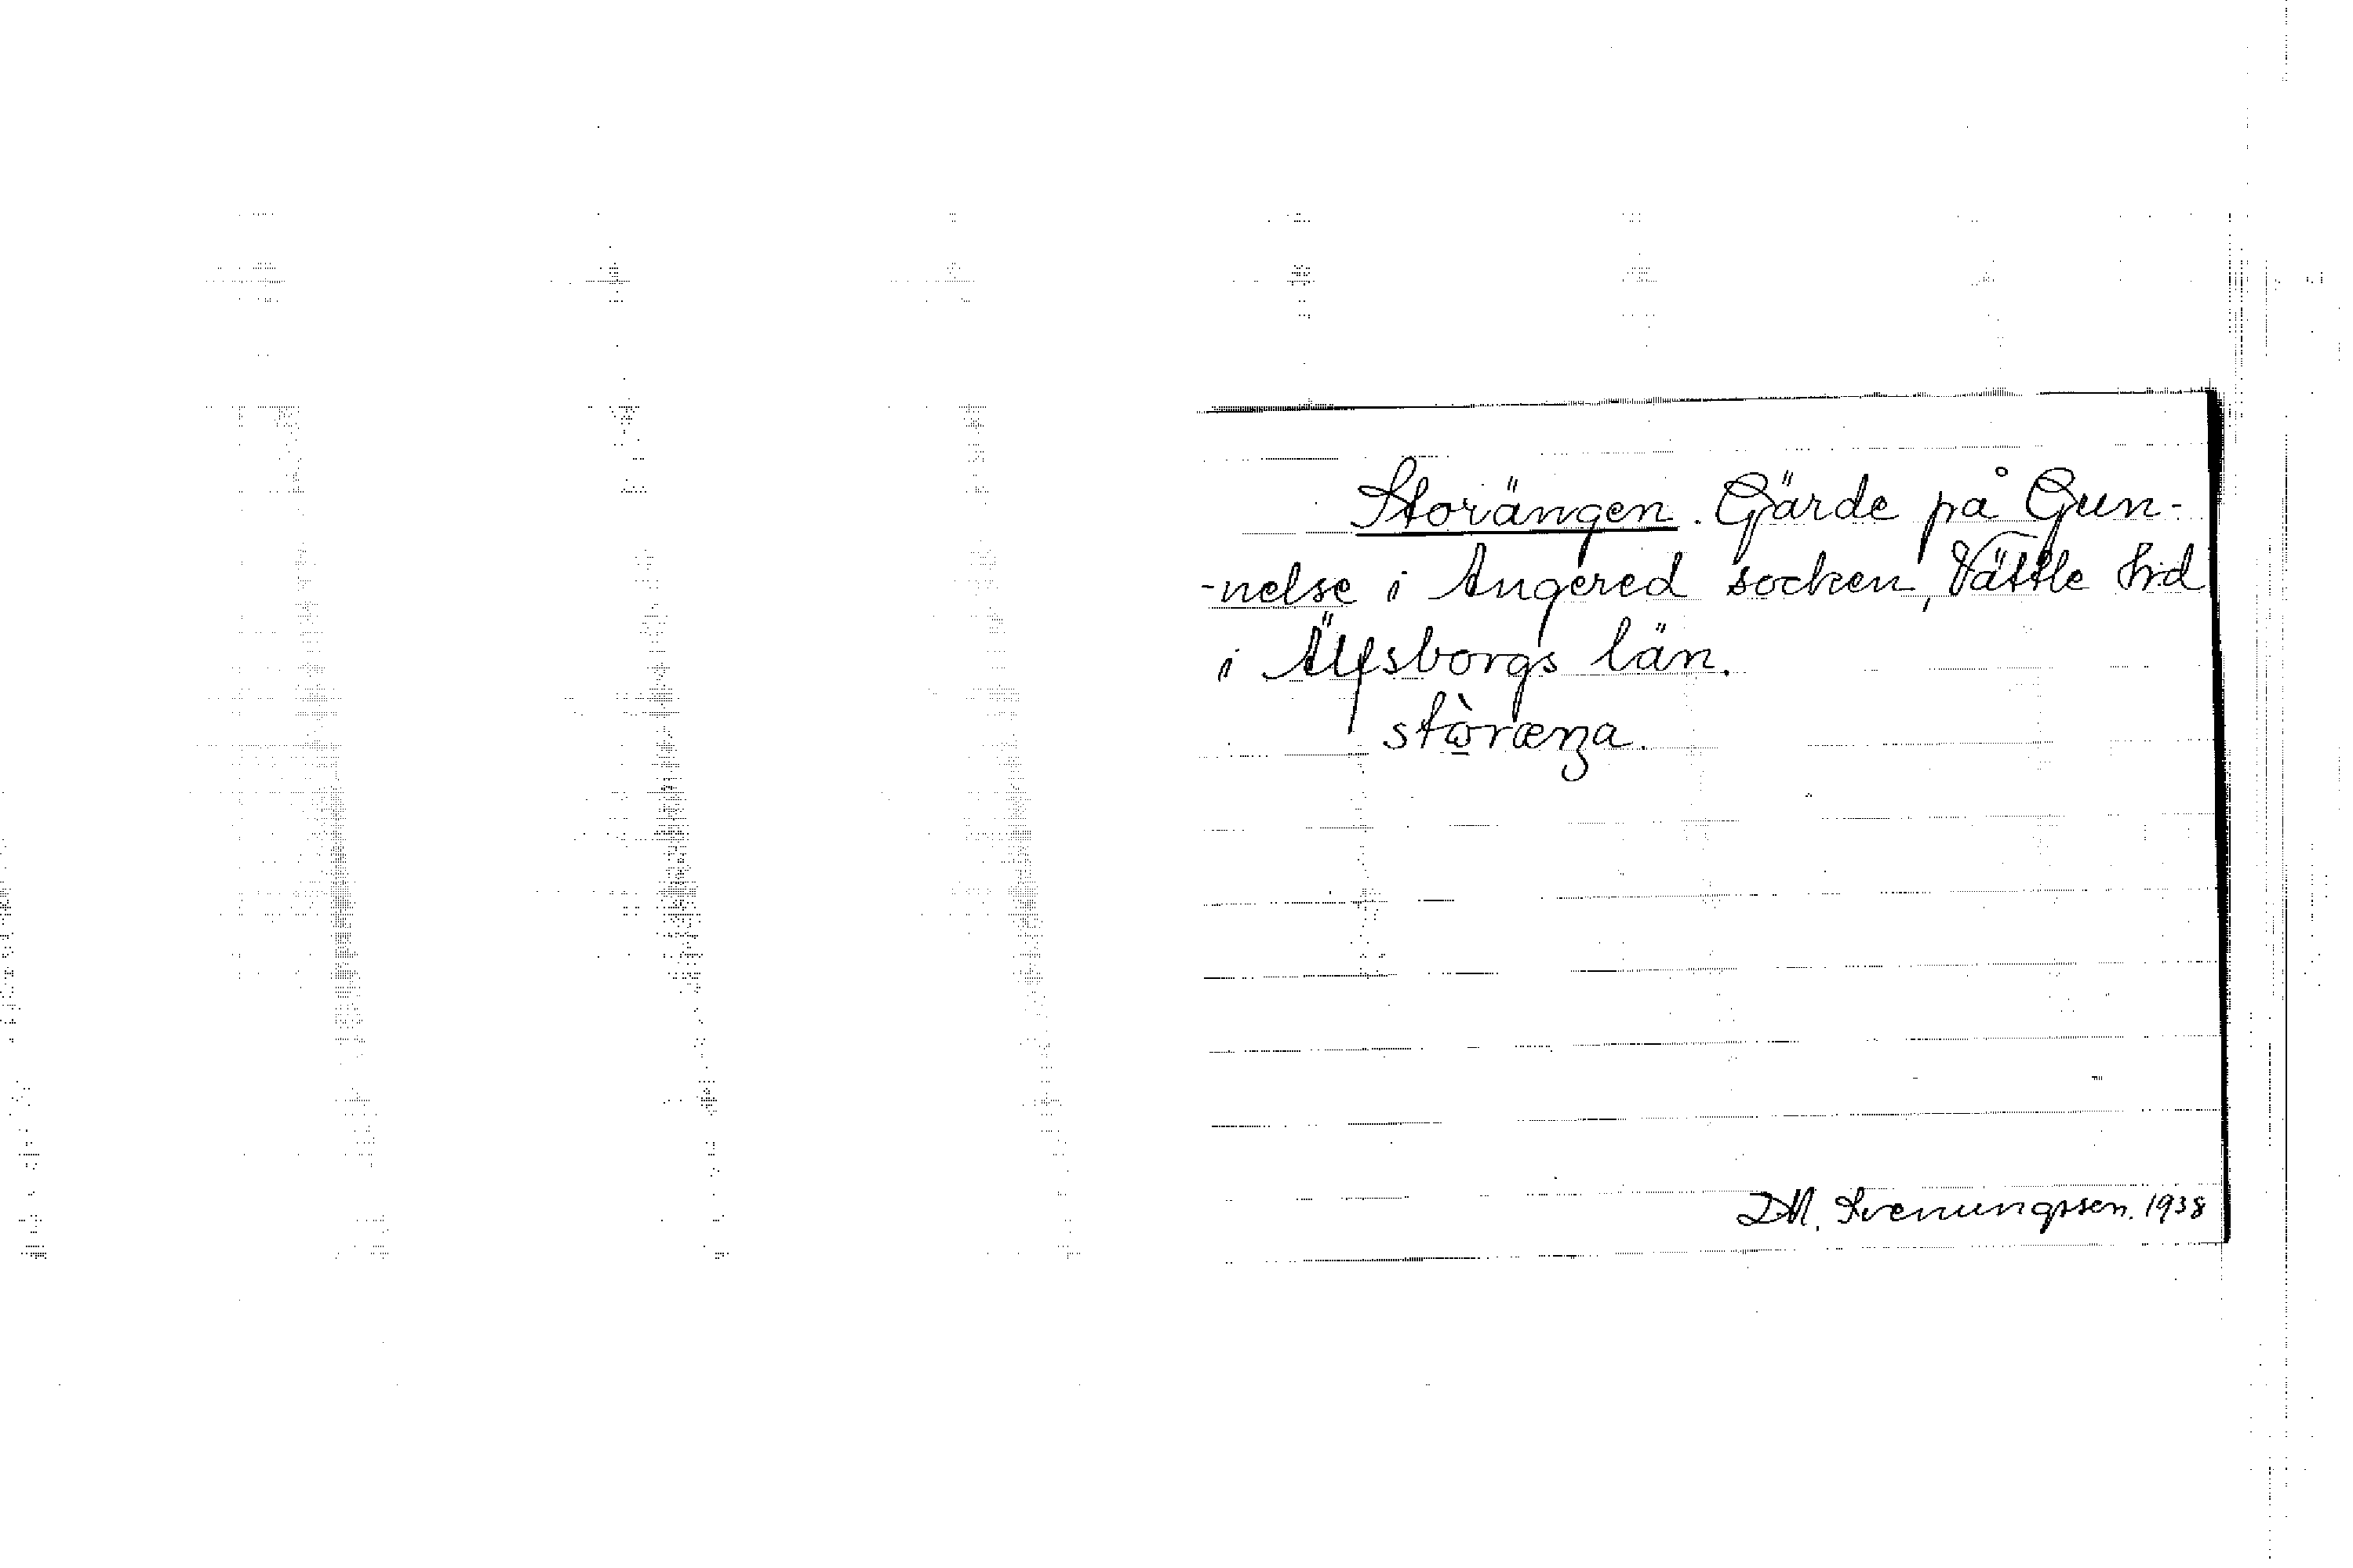 Storängen. Gärde på Gun-
-nelse i Angered socken, Vättle hrd
i Älfsborgs län.
stὼræŋa.
D.M. Svenungsson. 1938